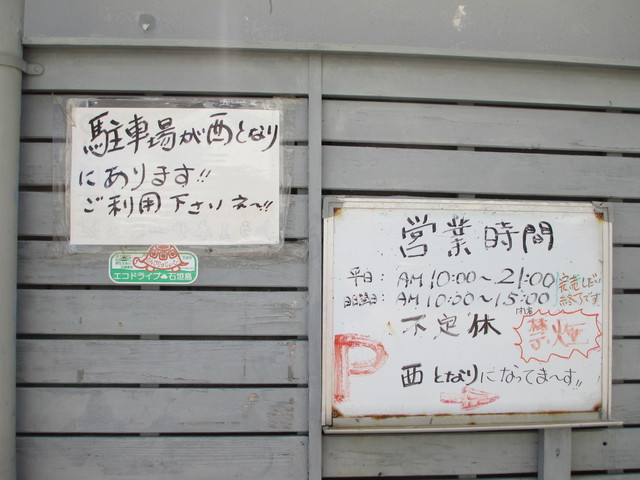 駐車場が西となり
にあります!!
ご利用下さいネ〜!!
エコドライブ 石垣島
営業時間
平日: AM 10:00〜21:00
日曜日: AM 10:00〜15:00
完売しだい
終了です
不定休
店内
禁煙
P
西となりになってま〜す!!